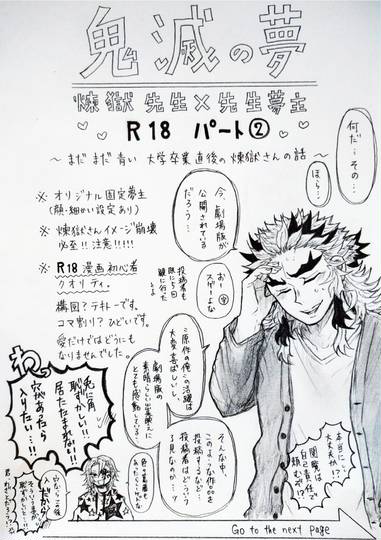 鬼滅の夢
煉獄先生×先生夢主
R18 パート②
～まだまだ青い 大学卒業直後の煉獄さんの話～
何だ…その…
ほら…
今、劇場版が
公開されている
だろう…
※ オリジナル固定夢主
(顔・細かい設定あり)
※ 煉獄さんイメージ崩壊
必至!! 注意!!!!!
※ R18漫画初心者
クオリティ。
構図?テキトーです。
コマ割り?ひどいです。
愛だけではどうにも
なりませんでした。
この原作の俺の活躍は
大変喜ばしいし、
劇場版の
素晴らしい出来映えに
とても感動している
そんな中、
このような作品を
投稿するなど…
投稿者はどういう
了見なのか…ッ
兎に角
恥ずかしい!!
居たたまれない!!
穴があったら
入りたい…!!
本当に
大丈夫か!?
閲覧は
自己責任で
頼むぞ!?
Go to the next page